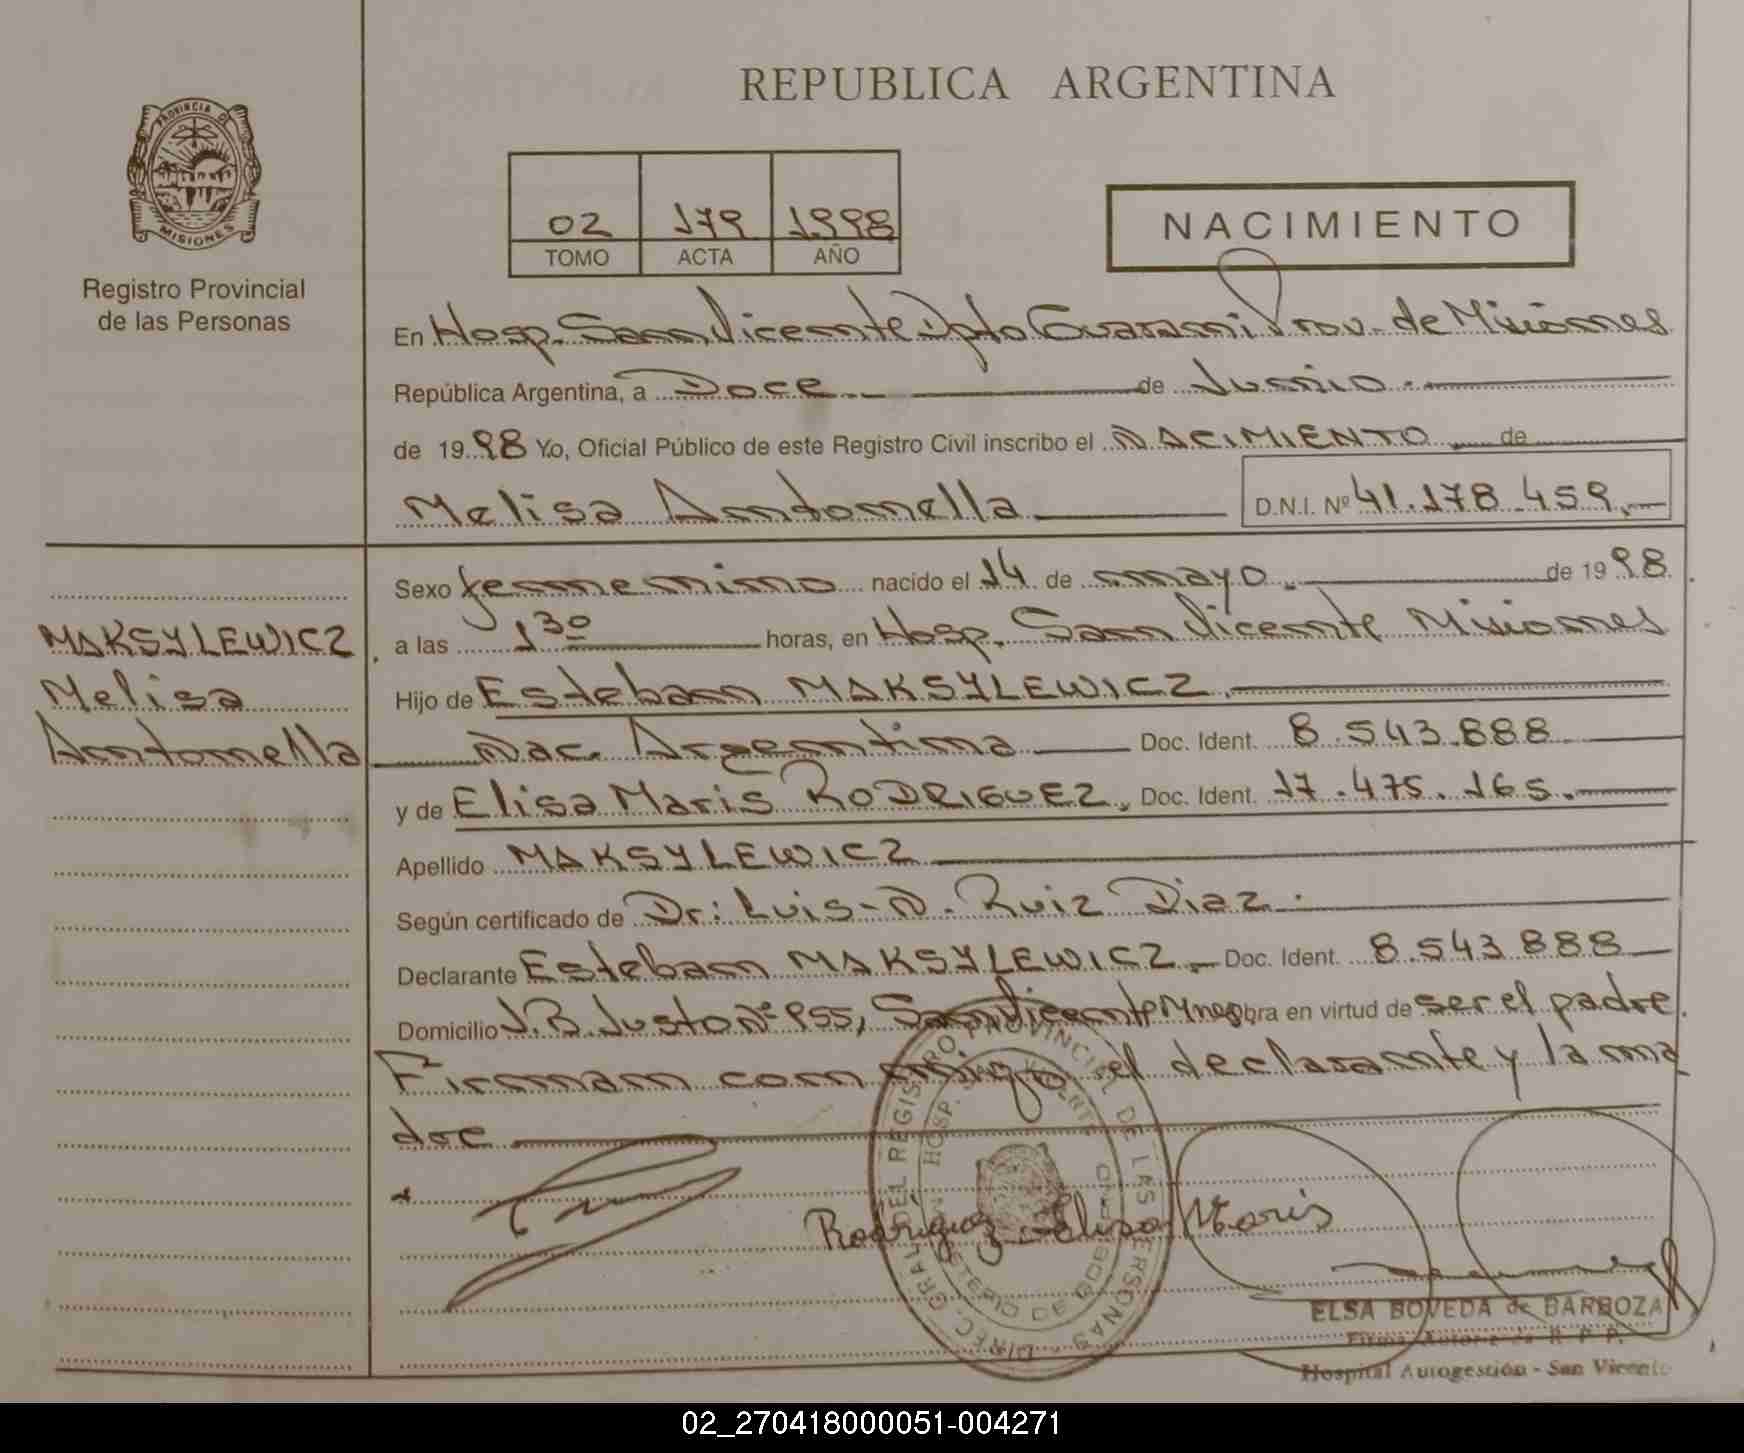 REPUBLICA ARGENTINA
PROVINCIA DE
MISIONES
Registro Provincial
de las Personas
02 179 1998
TOMO ACTA AÑO
NACIMIENTO
En Hosp. San Vicente Dpto Guarani Prov. de Misiones
República Argentina, a Doce de Junio
de 1998 Yo, Oficial Público de este Registro Civil inscribo el NACIMIENTO de
Melisa Antonella D.N.I. Nº 41.178.459.
MAKSYLEWICZ
Melisa
Antonella
Sexo femenino nacido el 14 de mayo. de 1998
a las 1 30 horas, en Hosp. San Vicente Misiones
Hijo de Esteban MAKSYLEWICZ.
Nac. Argentina Doc. Ident. 8.543.888
y de Elisa Maris RODRIGUEZ, Doc. Ident. 17.475.165.
Apellido MAKSYLEWICZ
Según certificado de Dr: Luis-N. Ruiz Diaz.
Declarante Esteban MAKSYLEWICZ. Doc. Ident. 8.543.888
Domicilio J.B. Justo Nº 955, San Vicente Mnes, obra en virtud de ser el padre.
Firman conmigo el declarante y la ma
dre
Rodriguez Elisa Maris
DIREC. GRAL. DEL REGISTRO PROVINCIAL DE LAS PERSONAS
HOSP. SAN VICENTE
MINISTERIO DE GOBIERNO
ELSA BOVEDA de BARBOZA
Firma Autor R. P. P.
Hospital Autogestión - San Vicente
02_270418000051-004271